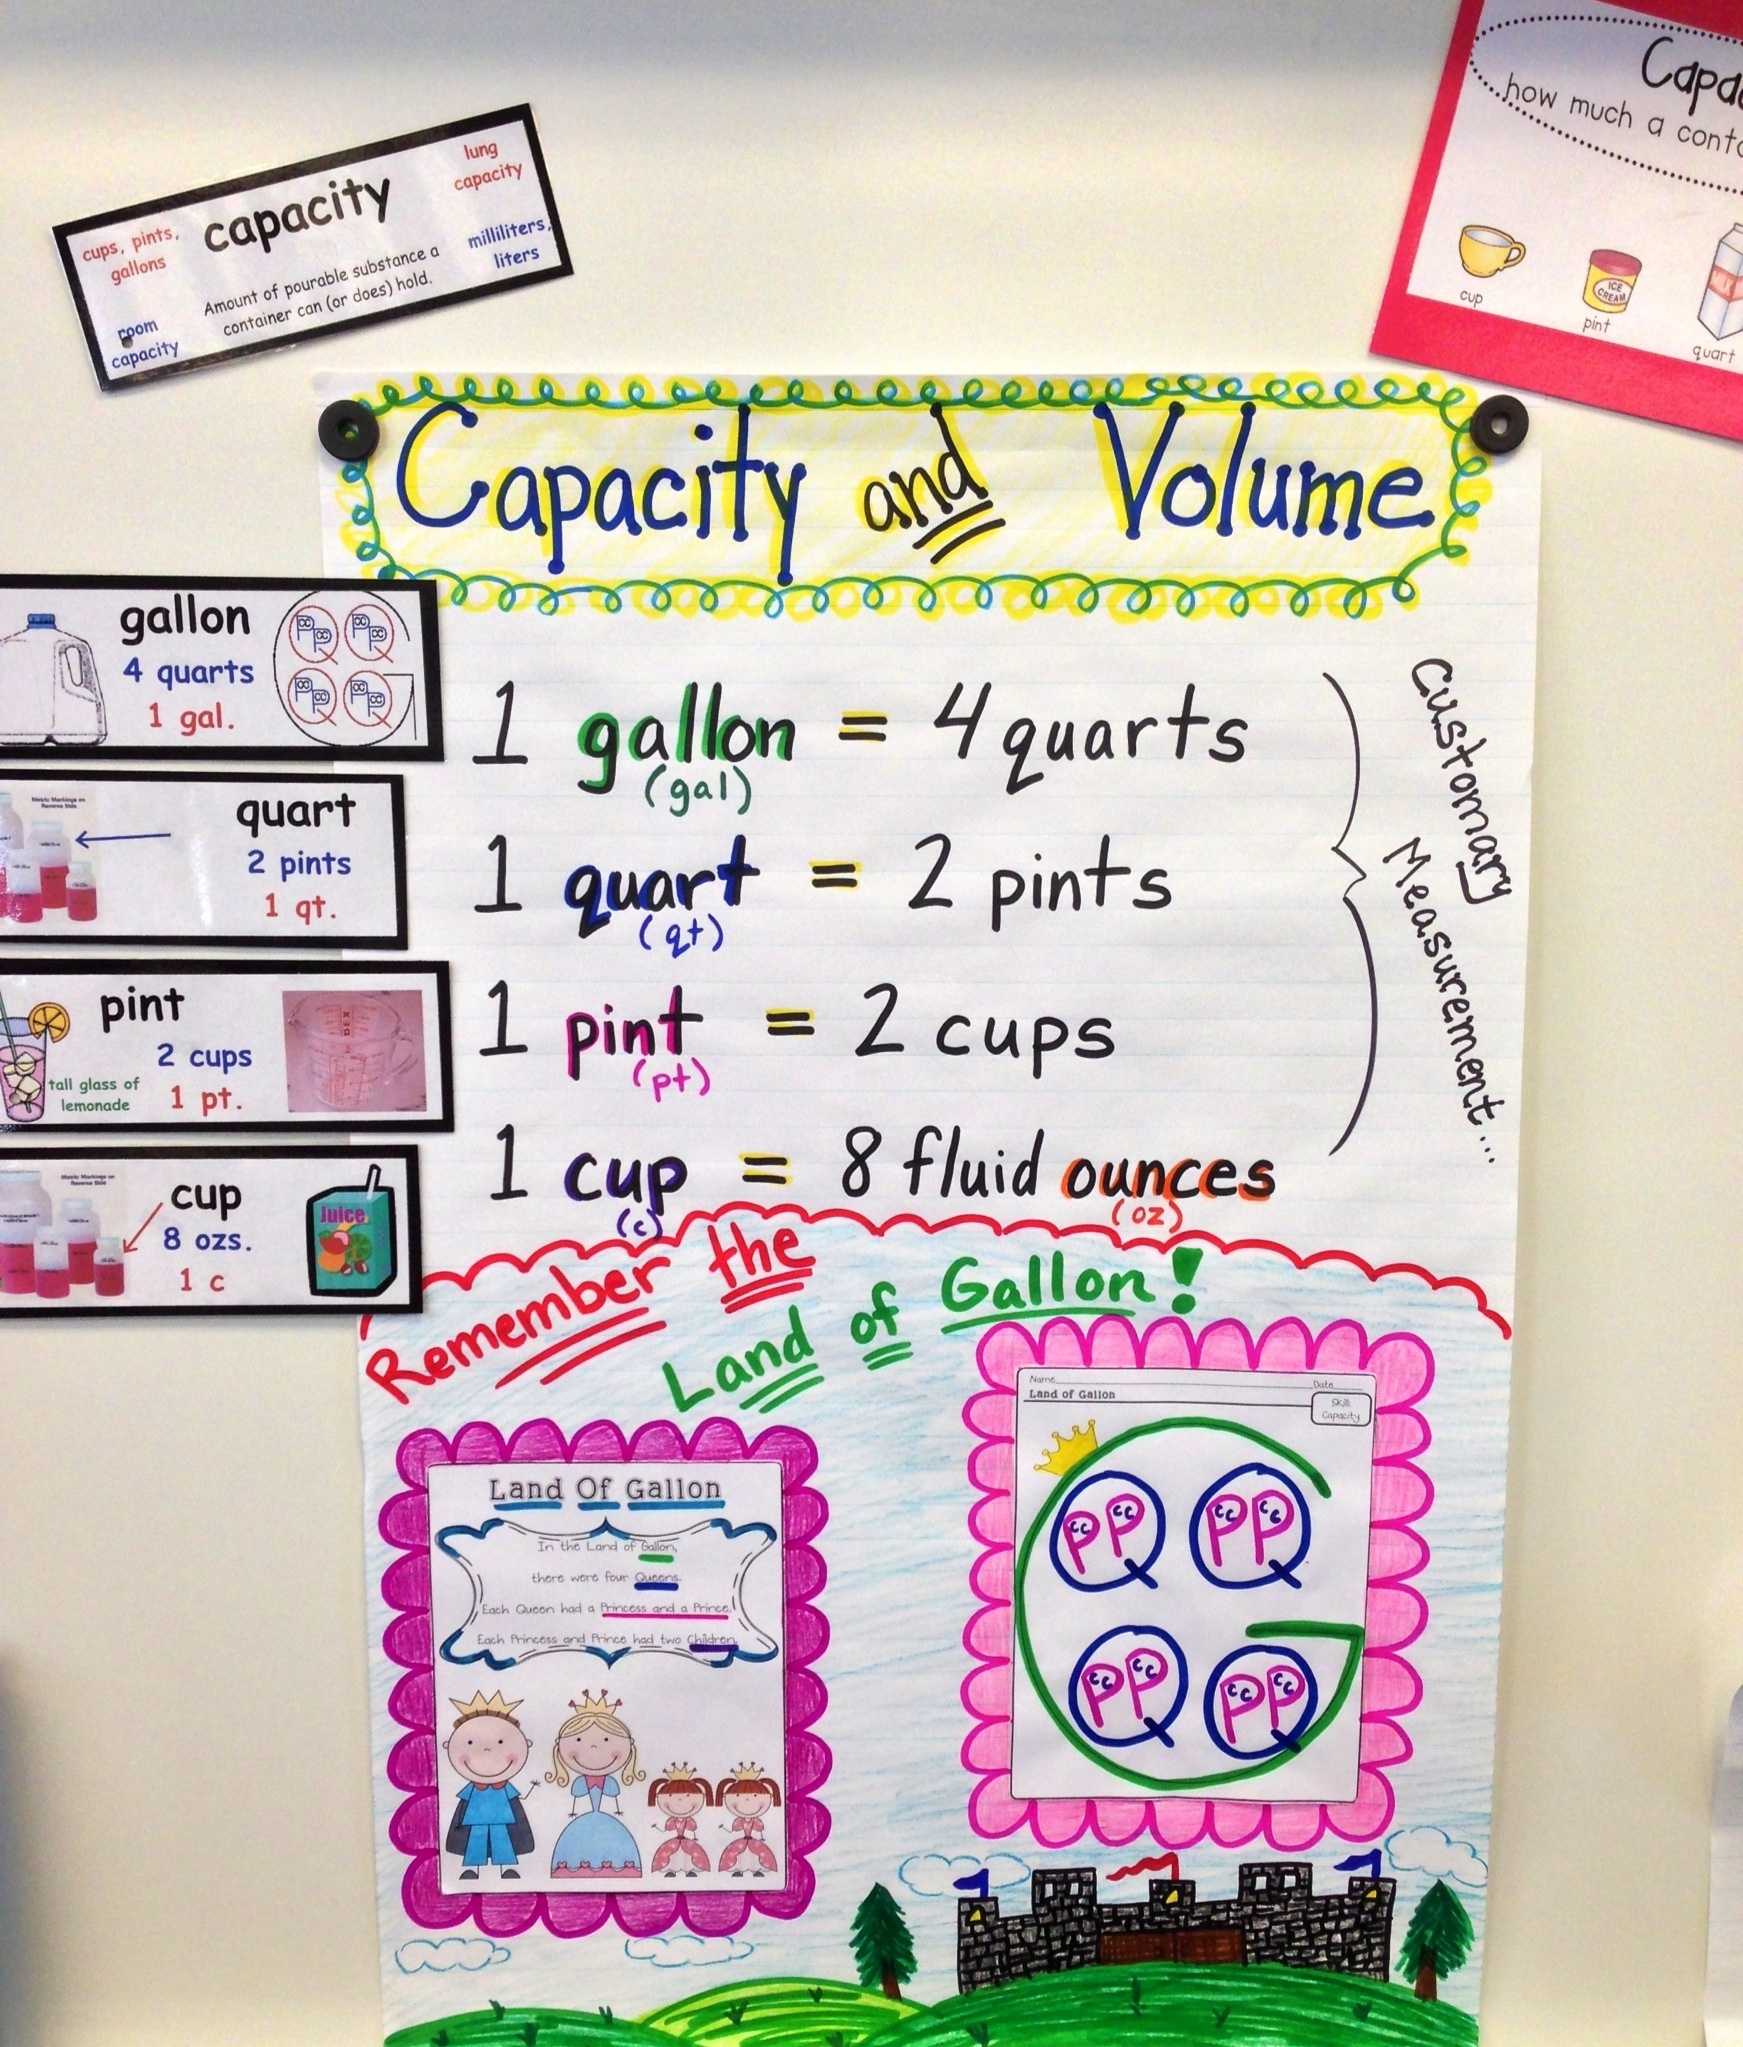 lung
capacity
capacity
cups, pints,
gallons
milliliters,
liters
Amount of pourable substance a
container can (or does) hold.
room
capacity
how much a
cup
pint
quart
ICE
CREAM
Capacity and Volume
gallon
4 quarts
1 gal.
1 gallon = 4 quarts
(gal)
Metric Markings on
Reverse Side
quart
2 pints
1 qt.
1 quart = 2 pints
(qt)
pint
2 cups
tall glass of
lemonade
1 pt.
1 pint = 2 cups
(pt)
Metric Markings on
Reverse Side
cup
8 ozs.
1 c
Juice
1 cup = 8 fluid ounces
(c)
(oz)
Customary
Measurement...
Remember the
Land of Gallon!
Land Of Gallon
In the Land of Gallon,
there were four Queens.
Each Queen had a Princess and a Prince.
Each Princess and Prince had two Children.
Name
Date
Land of Gallon
Skill:
Capacity
G
Q Q
P P P P
C C C C C C C C
Q Q
P P P P
C C C C C C C C